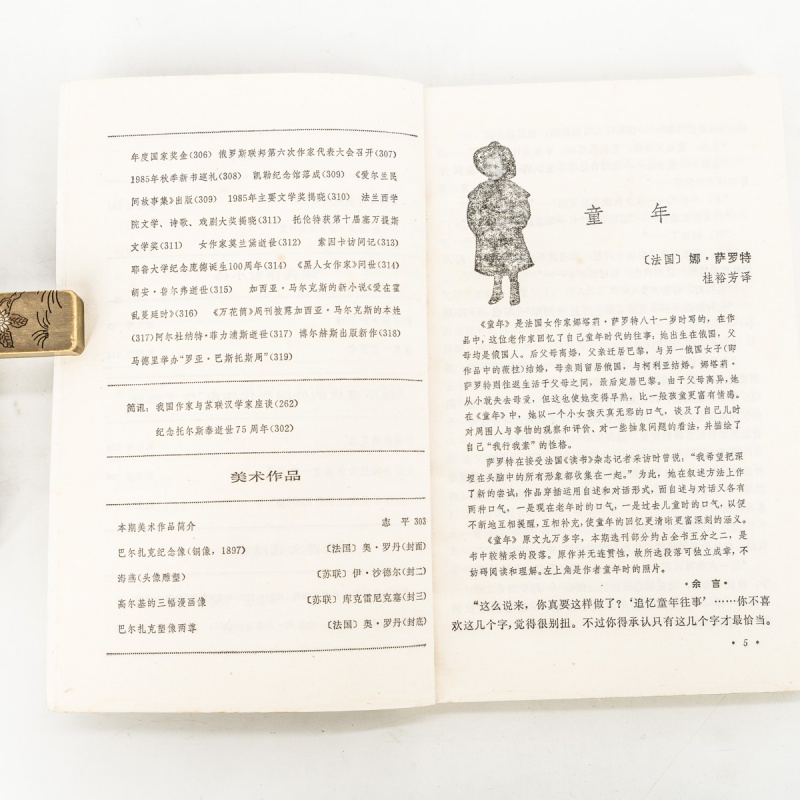 年度国家奖金(306) 俄罗斯联邦第六次作家代表大会召开(307)
1985年秋季新书巡礼(308) 凯勒纪念馆落成(309) 《爱尔兰民
间故事集》出版(309) 1985年主要文学奖揭晓(310) 法兰西学
院文学、诗歌、戏剧大奖揭晓(311) 托伦特获第十届塞万提斯
文学奖(311) 女作家莫兰黛逝世(312) 索因卡访问记(313)
耶鲁大学纪念庞德诞生100周年(314) 《黑人女作家》问世(314)
胡安·鲁尔弗逝世(315) 加西亚·马尔克斯的新小说《爱在霍
乱蔓延时》(316) 《万花筒》周刊披露加西亚·马尔克斯的本姓
(317)阿尔杜纳特·菲力浦斯逝世(317) 博尔赫斯出版新作(318)
马德里举办“罗亚·巴斯托斯周”(319)
简讯:我国作家与苏联汉学家座谈(262)
纪念托尔斯泰逝世75周年(302)
美术作品
本期美术作品简介 志 平 303
巴尔扎克纪念像(铜像,1897) 〔法国〕奥·罗丹(封面)
海燕(头像雕塑) 〔苏联〕伊·沙德尔(封二)
高尔基的三幅漫画像 〔苏联〕库克雷尼克塞(封三)
巴尔扎克塑像两尊 〔法国〕奥·罗丹(封底)
童 年
〔法国〕娜·萨罗特
桂裕芳译
《童年》是法国女作家娜塔莉·萨罗特八十一岁时写的,在作
品中,这位老作家回忆了自己童年时代的往事,她出生在俄国,父
母均是俄国人。后父母离婚,父亲迁居巴黎,与另一俄国女子(即
作品中的薇拉)结婚,母亲则留居俄国,与柯利亚结婚。娜塔莉·
萨罗特则往返生活于父母之间,最后定居巴黎。由于父母离异,她
从小就失去母爱,但这也使她变得早熟,比一般孩童更富有情感。
在《童年》中,她以一个小女孩天真无邪的口气,谈及了自己儿时
对周围人与事物的观察和评价、对一些抽象问题的看法,并描绘了
自己“我行我素”的性格。
萨罗特在接受法国《读书》杂志记者采访时曾说:“我希望把深
埋在头脑中的所有形象都收集在一起。”为此,她在叙述方法上作
了新的尝试,作品穿插运用自述和对话形式,而自述与对话又各有
两种口气,一是现在老年时的口气,一是过去儿童时的口气,以便
不断地互相提醒,互相补充,使童年的回忆更清晰更富深刻的涵义。
《童年》原文九万多字,本期选刊部分约占全书五分之二,是
书中较精采的段落。原作并无连贯性,故所选段落可独立成章,不
妨碍阅读和理解。左上角是作者童年时的照片。
·余 言·
“这么说来,你真要这样做了?‘追忆童年往事’……你不喜
欢这几个字,觉得很别扭。不过你得承认只有这几个字才最恰当。
·5·